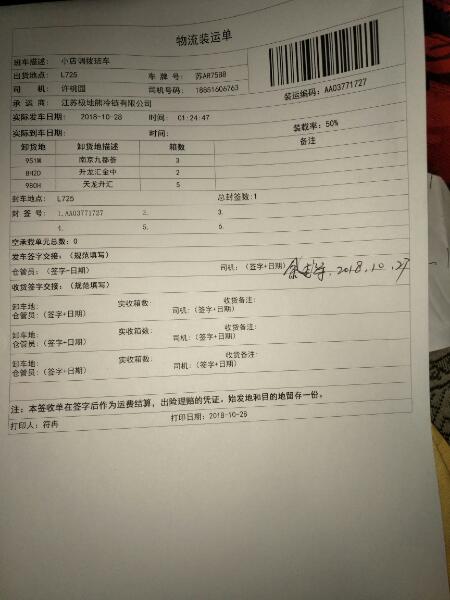 物流装运单
班车描述: 小店调拨班车
出货地点: L725 车 牌 号: 苏AR7588
司 机: 许桃园 司机号码: 18851606763
装运编码: AA03771727
承 运 商: 江苏极地熊冷链有限公司
实际发车日期: 2018-10-28 时间: 01:24:47
实际到车日期: 时间: 装载率: 50%
卸货地 卸货地描述 箱数 备注
951M 南京九都荟 3
8H2D 升龙汇金中 2
980H 天龙升汇 5
封车地点: L725 总封签数:1
封 签 号: 1.AA03771727 2. 3.
4. 5. 6.
空承载单元总数: 0
发车签字交接: (规范填写)
仓管员: (签字+日期) 司机: (签字+日期) 2018.10.27
收货签字交接: (规范填写)
卸车地: 实收箱数: 收货备注:
仓管员: (签字+日期) 司机: (签字+日期)
卸车地: 实收箱数: 收货备注:
仓管员: (签字+日期) 司机: (签字+日期)
卸车地: 实收箱数: 收货备注:
仓管员: (签字+日期) 司机: (签字+日期)
注: 本签收单在签字后作为运费结算, 出险理赔的凭证, 始发地和目的地留存一份。
打印人: 符冉 打印日期: 2018-10-28